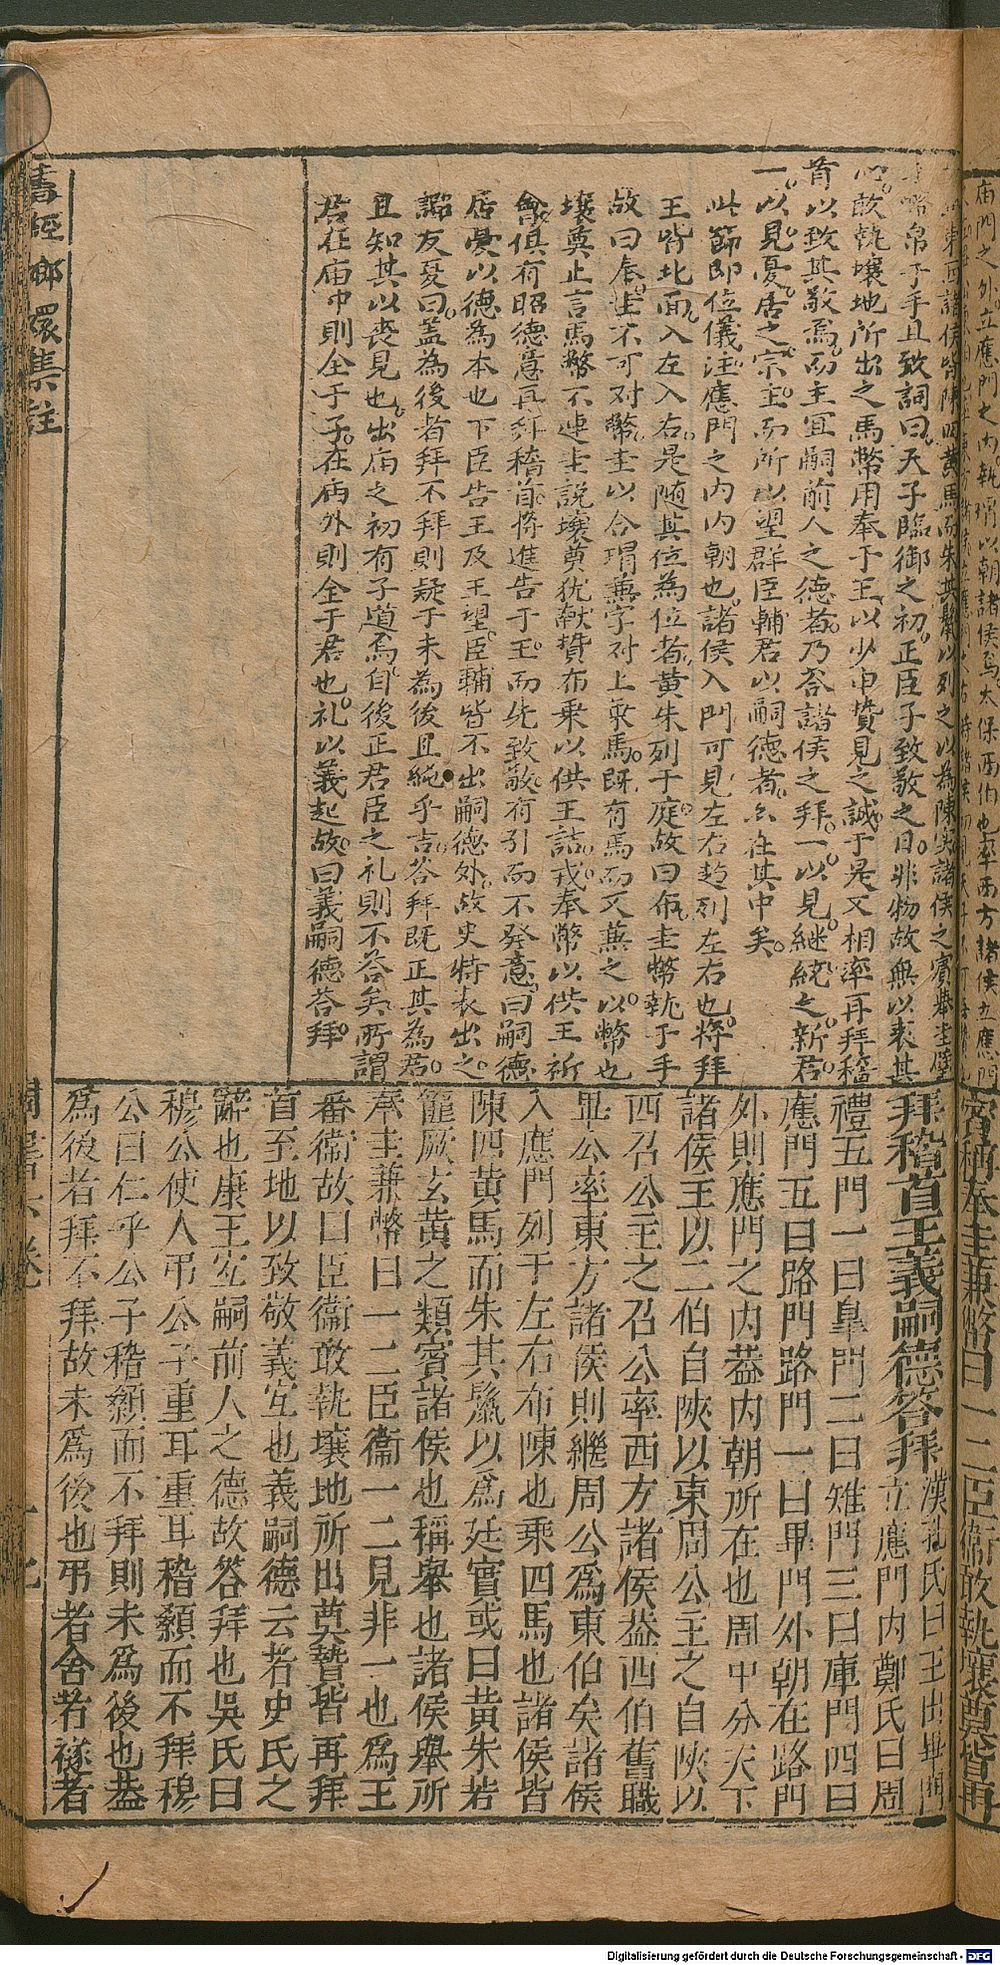 廟門之外立應門之內執瑁以朝諸侯焉太保西伯也率西方諸侯立應門
東向諸侯皆陳四黃馬而朱其鬣以列之以為陳实諸侯之賓举圭璧
幣帛于手且致詞曰天子臨御之初正臣子致敬之日非物故無以表其
心敢執壤地所出之馬幣用奉于王以少申贄見之誠于是又相率再拜稽
首以致其敬焉而主宜嗣前人之德者乃荅諸侯之拜一以見継統之新君
一以見憂居之宗主而所以望群臣輔君以嗣德者亦在其中矣
此節即位儀註應門之内内朝也諸侯入門可見左右趋列左右也将拜
王皆北面入左入右是随其位為位者黃朱列于庭故曰布圭幣執于手
故曰奉圭不可对幣圭以合瑁兼字对上乘馬既有馬而又兼之以幣也
壤奠止言馬幣不連圭説壤奠犹献贄布乗以供王詰戎奉幣以供王祈
會俱有昭德意再拜稽首将進告于王而先致敬有引而不發意曰嗣德
居憂以德為本也下臣告王及王望臣輔皆不出嗣德外故史特表出之
諮友夏曰蓋為後者拜不拜則疑于未為後且純乎吉荅拜既正其為君
且知其以丧見也出庙之初有子道焉自後正君臣之礼則不荅矣所謂
君在庙中則全于子在庙外則全于君也礼以義起故曰義嗣德荅拜
賓稱奉圭兼幣曰一二臣衞敢執壤奠皆再
拜稽首王義嗣德答拜 漢孔氏曰王出畢門
立應門内鄭氏曰周
禮五門一曰皐門二曰雉門三曰庫門四曰
應門五曰路門路門一曰畢門外朝在路門
外則應門之内葢内朝所在也周中分天下
諸侯王以二伯自陝以東周公主之自陝以
西召公主之召公率西方諸侯葢西伯舊職
畢公率東方諸侯則繼周公爲東伯矣諸侯
入應門列于左右布陳也乘四馬也諸侯皆
陳四黃馬而朱其鬣以爲廷實或曰黃朱若
篚厥玄黃之類賓諸侯也稱舉也諸侯舉所
奉圭兼幣曰一二臣衞一二見非一也爲王
番衞故曰臣衞敢執壤地所出奠贄皆再拜
首至地以致敬義宜也義嗣德云者史氏之
辭也康王宜嗣前人之德故答拜也吳氏曰
穆公使人弔公子重耳重耳稽顙而不拜穆
公曰仁乎公子稽顙而不拜則未爲後也葢
爲後者拜不拜故未爲後也弔者含者襚者
書經嫏嬛集註
周書六卷